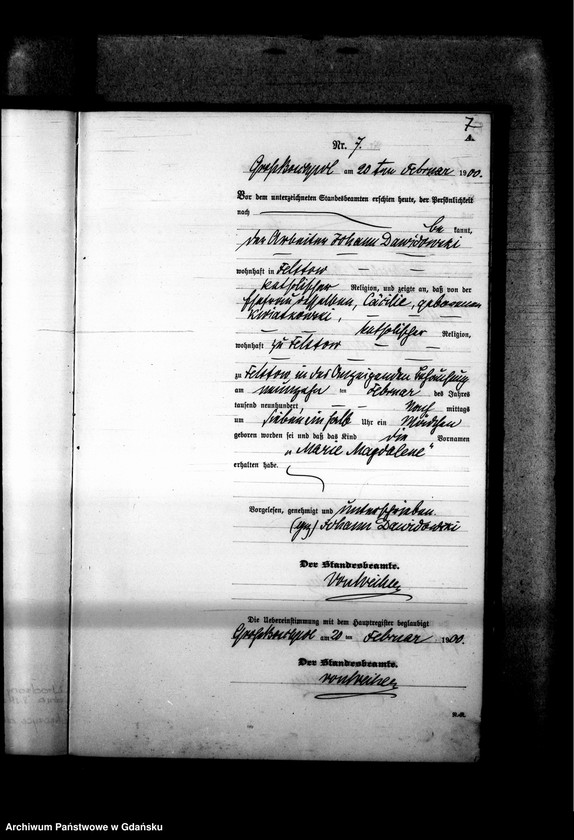 7
A.
Nr. 7.
am 20 ten Februar 1900.
Vor dem unterzeichneten Standesbeamten erschien heute, der Persönlichkeit
nach
be kannt,
der Arbeiter Johann Dawidowski
wohnhaft in Felstow
katholischer Religion, und zeigte an, daß von der
Ehefrau desselben, Cäcilie, geborenen
Kwiatkowski,
katholischer Religion,
wohnhaft zu Felstow
zu Felstow in des Anzeigenden Behausung
am neunzehn ten Februar des Jahres
tausend neunhundert Nach mittags
um sieben ein halb Uhr ein Mädchen
geboren worden sei und daß das Kind die Vornamen
„Marie Magdalene"
erhalten habe.
Vorgelesen, genehmigt und unterschrieben.
(gez) Johann Dawidowski
Der Standesbeamte.
Die Uebereinstimmung mit dem Hauptregister beglaubigt
am 20 ten Februar 1900.
Der Standesbeamte.
Archiwum Państwowe w Gdańsku